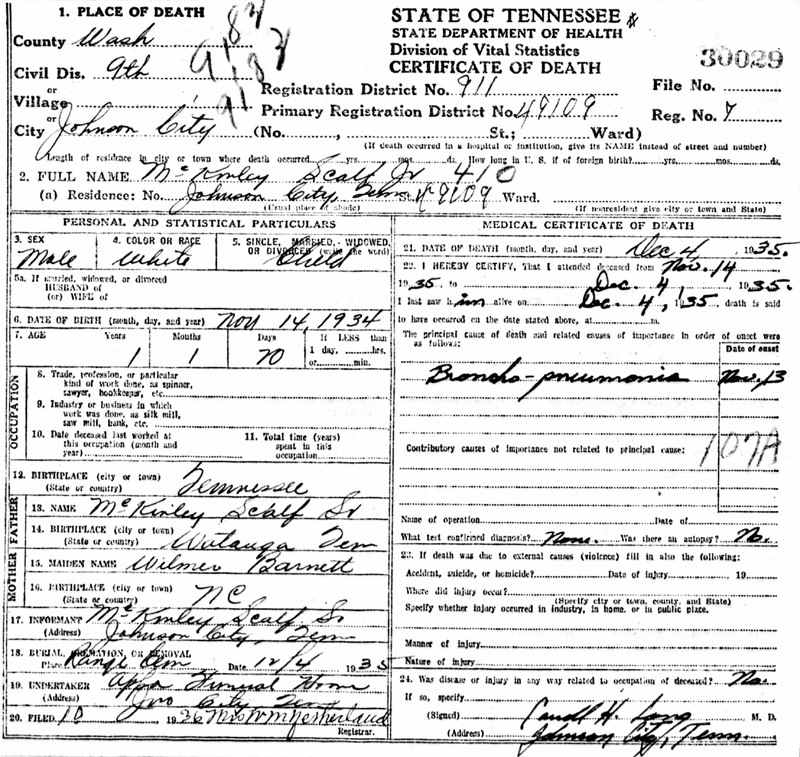 1. PLACE OF DEATH
County Wash
Civil Dis. 9th
or
Village
or
City Johnson City
9182
9182
STATE OF TENNESSEE
STATE DEPARTMENT OF HEALTH
Division of Vital Statistics
CERTIFICATE OF DEATH
30029
Registration District No. 911
File No.
Primary Registration District No. 49109
Reg. No. 7
(No. , St.; Ward)
(If death occurred in a hospital or institution, give its NAME instead of street and number)
Length of residence in city or town where death occurred yrs. mos. ds. How long in U. S. if of foreign birth? yrs. mos. ds.
2. FULL NAME McKinley Scalf Jr 410
(a) Residence: No. Johnson City Tenn 49109 Ward.
(Usual place of abode) (If nonresident give city or town and State)
PERSONAL AND STATISTICAL PARTICULARS
3. SEX 4. COLOR OR RACE 5. SINGLE, MARRIED, WIDOWED,
OR DIVORCED (write the word)
Male White Child
5a. If married, widowed, or divorced
HUSBAND of
(or) WIFE of
6. DATE OF BIRTH (month, day, and year) Nov 14, 1934
7. AGE Years Months Days If LESS than
1 day, hrs.
or min.
1 1 20
OCCUPATION
8. Trade, profession, or particular
kind of work done, as spinner,
sawyer, bookkeeper, etc.
9. Industry or business in which
work was done, as silk mill,
saw mill, bank, etc.
10. Date deceased last worked at
this occupation (month and
year)
11. Total time (years)
spent in this
occupation
12. BIRTHPLACE (city or town)
(State or country) Tennessee
FATHER
13. NAME McKinley Scalf Sr
14. BIRTHPLACE (city or town)
(State or country) Watauga Tenn
MOTHER
15. MAIDEN NAME Wilmer Barnett
16. BIRTHPLACE (city or town)
(State or country) NC
17. INFORMANT McKinley Scalf Sr
(Address) Johnson City, Tenn
18. BURIAL, CREMATION, OR REMOVAL
Place Range Cem Date 12/4 1935
19. UNDERTAKER Appa Funeral Home
(Address) Jno City Tenn
20. FILED 10 1936 Mrs Wm Netherland
Registrar.
MEDICAL CERTIFICATE OF DEATH
21. DATE OF DEATH (month, day, and year) Dec 4 1935.
22. I HEREBY CERTIFY, That I attended deceased from Nov. 14
1935 to Dec. 4, 1935.
I last saw him alive on Dec. 4, 1935, death is said
to have occurred on the date stated above, at m.
The principal cause of death and related causes of importance in order of onset were
as follows:
Date of onset
Broncho-pneumonia Nov. 13
107A
Contributory causes of importance not related to principal cause:
Name of operation Date of
What test confirmed diagnosis? None. Was there an autopsy? No.
23. If death was due to external causes (violence) fill in also the following:
Accident, suicide, or homicide? Date of injury 19
Where did injury occur?
(Specify city or town, county, and State)
Specify whether injury occurred in industry, in home, or in public place.
Manner of injury
Nature of injury
24. Was disease or injury in any way related to occupation of deceased? No.
If so, specify
(Signed) H. Long M. D.
(Address) Johnson City, Tenn.